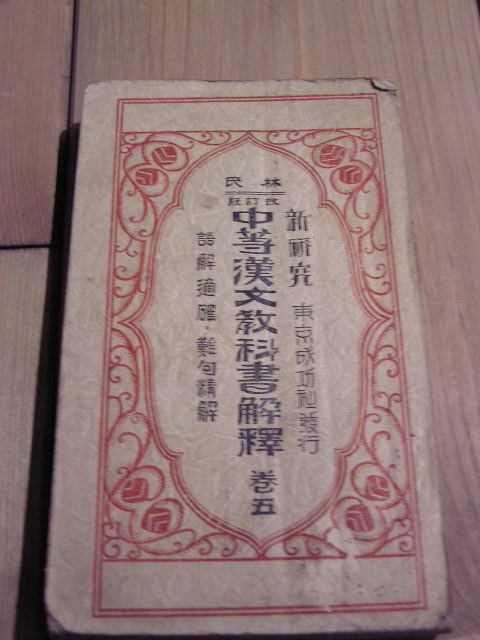 林民
改訂版
新研究
東京成功社發行
中等漢文教科書解釋 卷五
語解適確・難句精解